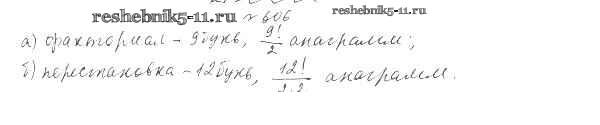 reshebnik5-11.ru № 606 reshebnik5-11.ru
а) факториал – 9 букв, 9!/2 анаграмм;
б) перестановка – 12 букв, 12!/2·2 анаграмм.